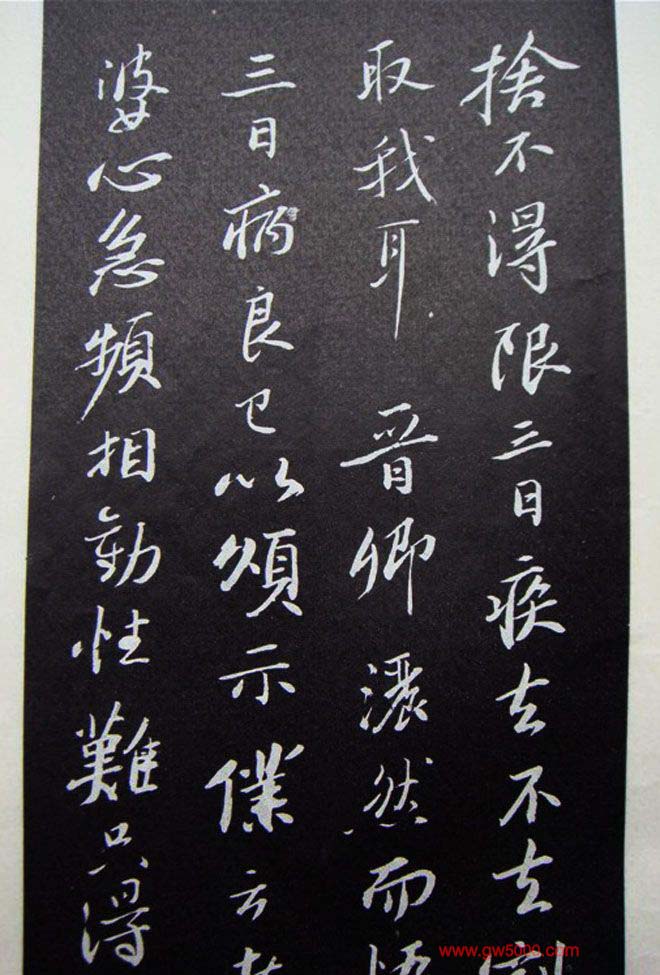 捨不得限三日疾去不去
取我耳 晋卿灑然而悟
三日病良已以頌示僕云
婆心急頻相勸性難只得
www.gw5000.com